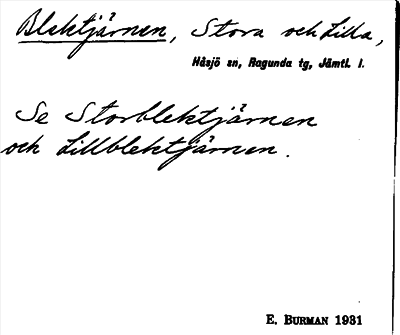 Blektjärnen, Stora och Lilla,
Håsjö sn, Ragunda tg, Jämtl. l.
Se Storblektjärnen
och Lillblektjärnen.
E. BURMAN 1931